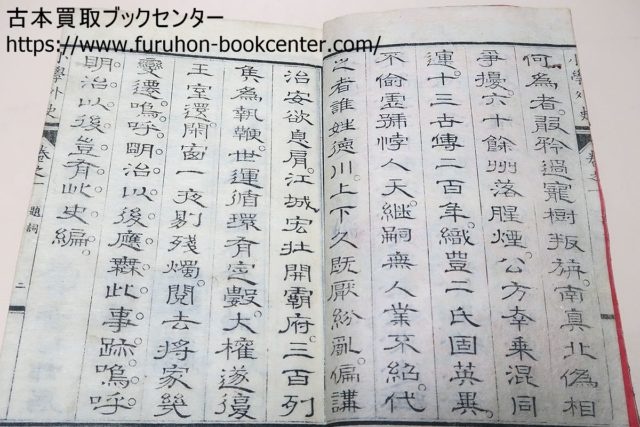 古本買取ブックセンター
https://www.furuhon-bookcenter.com/
小學外史 卷之一
何為者。矜過寵樹叛旃。南真北偽相
爭擾。六十餘州落腥煙。公方幸乗混同
運。十三古傳二百年。織豊二氏固英異。
不偷虛號悖人天。繼嗣無人業不紹。代
之者誰姓徳川。上下久既厭紛亂。偏講
治安欲息肩。江城宏壮開霸府。三百列
矦為執鞭。世運循環有定數。大權遂復
王室還。閑窗一夜剔殘燭。閲去將家幾
變遷。嗚呼。明治以後應無此事跡。嗚呼
明治以後豈有此史編。
小學外史 卷之一 題詞 二